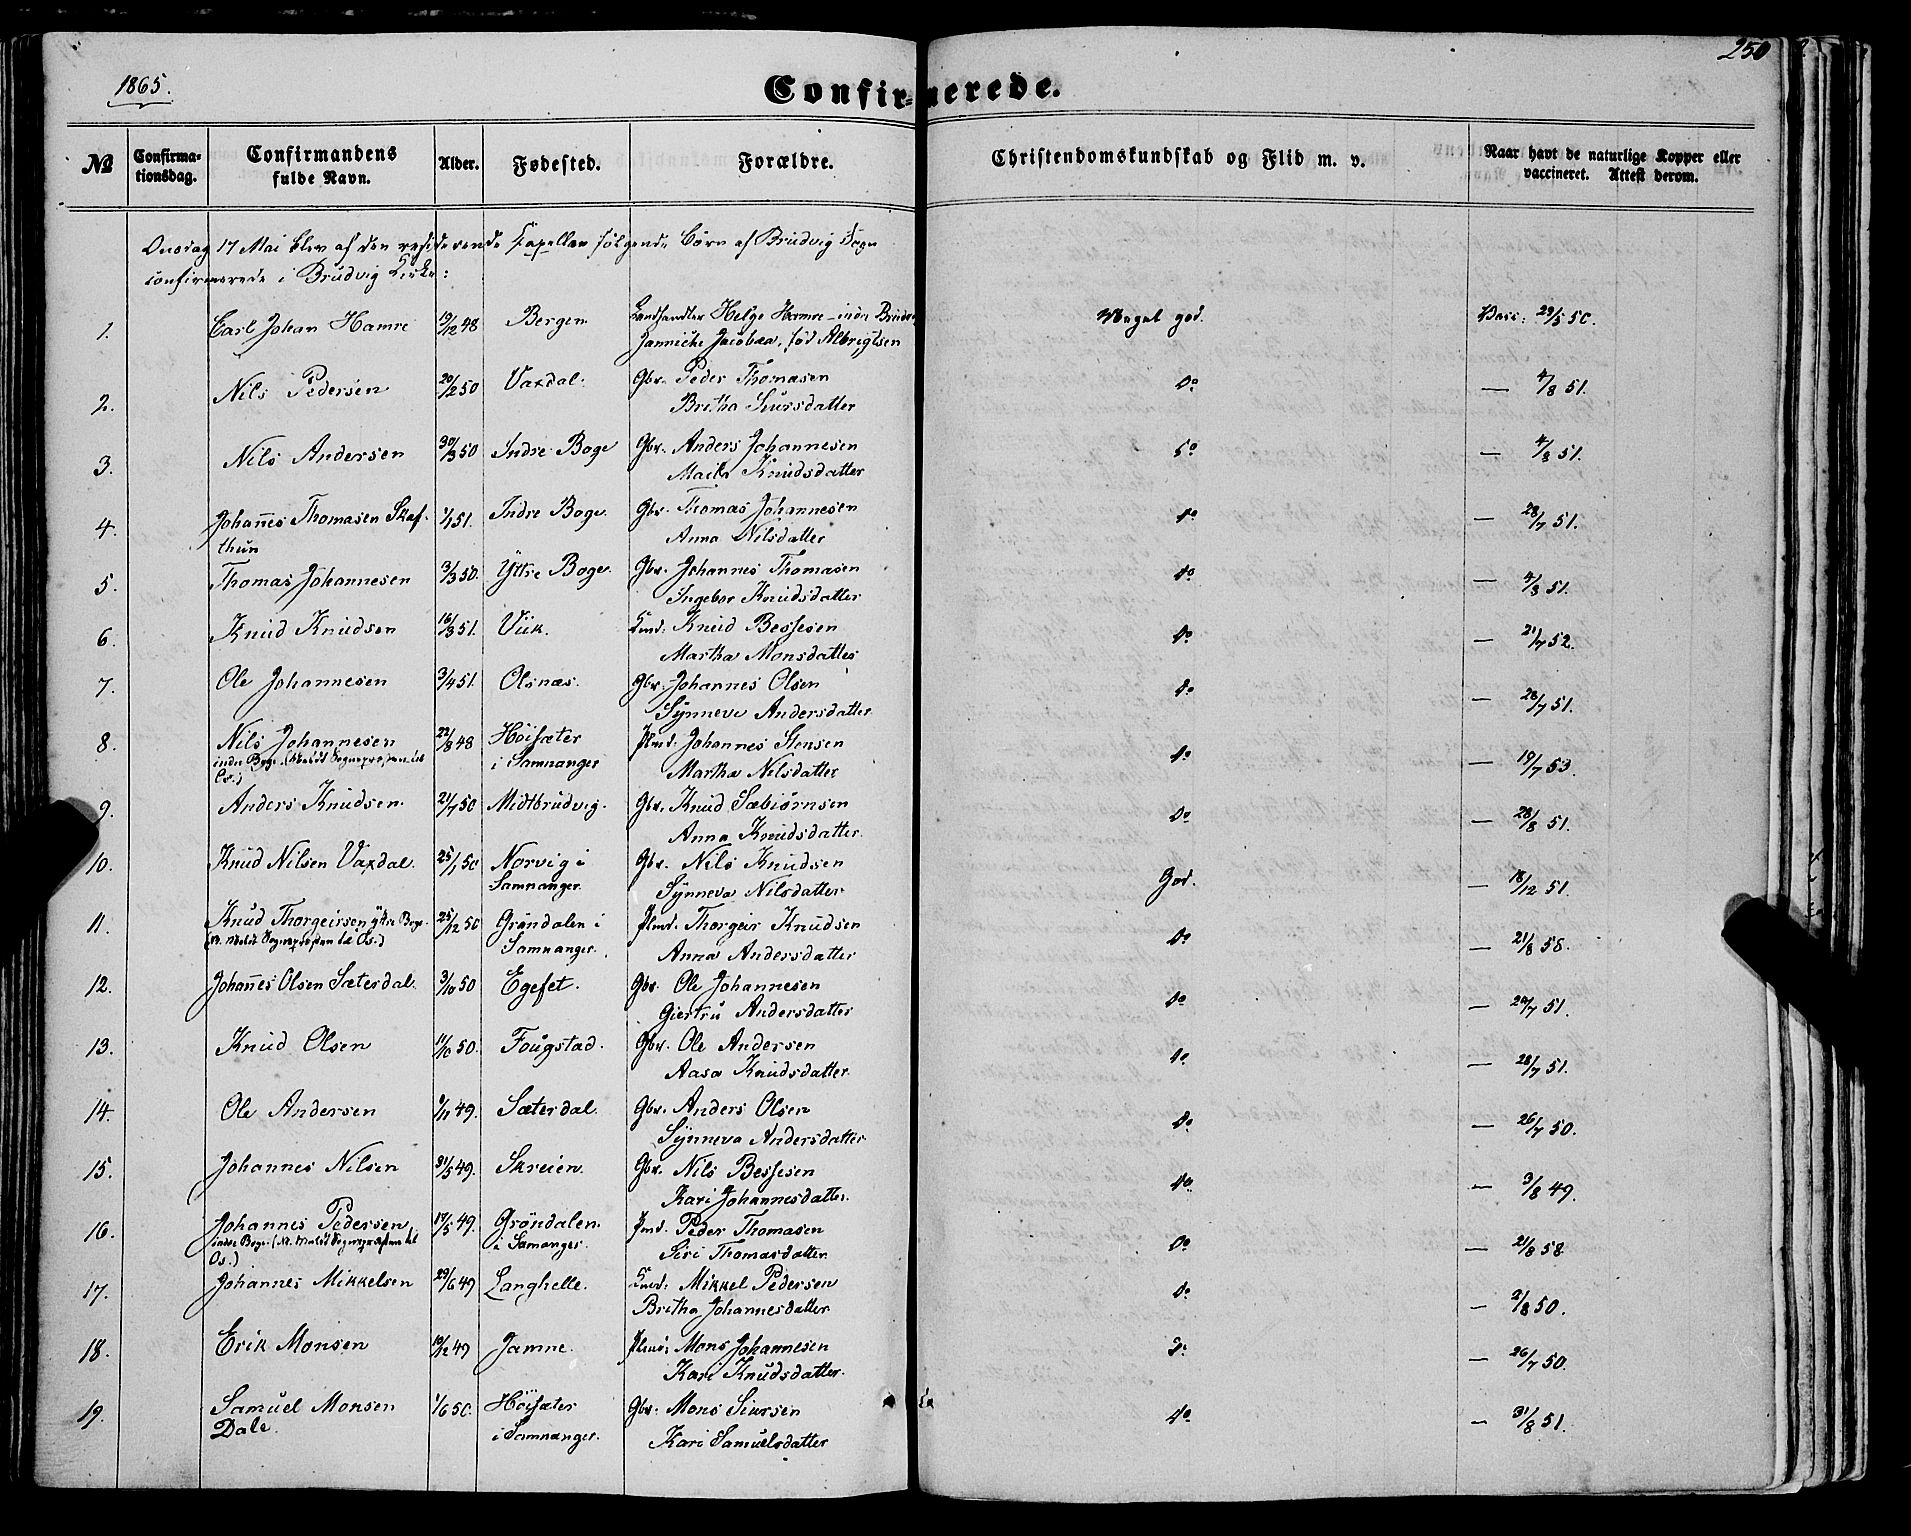 250
1865.
Confirmerede.
No
Confirmationsdag.
Confirmandens fulde Navn.
Alder.
Fødested.
Forældre.
Christendomskundskab og Flid m. v.
Naar havt de naturlige Kopper eller vaccineret. Attest derom.
Onsdag 17 Mai blev af den residerende Capellan følgende Børn af Brudvig Sogn
confirmerede i Brudvig Kirke:
1. Carl Johan Hamre 19/12 48 Bergen Landhandler Helge Hamre Meget god. Vacc: 29/5 50.
Jannicke Jacobæa, fød Albrigtsen
2. Nils Pedersen 20/2 50 Vaxdal. Gbr. Peder Thomasen Do — 4/8 51.
Britha Siursdatter
3. Nils Andersen 30/3 50 Indre Boge Gbr. Anders Johannesen do — 4/8 51.
Knudsdatter
4. Johañes Thomasen Skaf- 1/1 51. Indre Boge. Gbr. Thomas Johannesen do — 28/7 51.
thun Anna Nilsdatter
5. Thomas Johannesen 3/3 50. Yttre Boge. Gbr. Johannes Thomasen do — 4/8 51.
Ingebor Knudsdatter
6. Knud Knudsen 16/3 51. Viik. Knud Bessesen do — 21/7 52.
Martha Monsdatter
7. Ole Johannesen 3/4 51. Olsnæs. Gbr. Johannes Olsen do — 28/7 51.
Synneve Andersdatter
8. Nils Johannesen 22/8 48 Høisæter Plmd. Johannes Stensen do — 19/7 53.
indre Boge. i Samnanger Martha Nilsdatter
9. Anders Knudsen. 21/7 50 Midtbrudvig. Gbr. Knud Sæbiørnsen Do — 28/8 51.
Anna Knudsdatter.
10. Knud Nilsen Vaxdal. 25/1 50 Norvig i Gbr. Nils Knudsen God. — 18/12 51.
Samnanger. Synneva Nilsdatter
11. Knud Thorgeirsen ytre Boge. 25/12 50 Grøndalen i Plmd. Thorgeir Knudsen Do — 21/8 58.
Samnanger. Anna Andersdatter
12. Johañes Olsen Sæterdal. 3/10 50 Egeset. Gbr. Ole Johannesen do — 28/7 51.
Giertru Andersdatter
13. Knud Olsen 11/10 50. Fougstad. Gbr. Ole Andersen do — 28/7 51.
Aasa Knudsdatter.
14. Ole Andersen 9/11 49. Sæterdal. Gbr. Anders Olsen do — 26/7 50.
Synneva Andersdatter
15. Johannes Nilsen 31/5 49. Skreien. Gbr. Nils Bessesen do — 3/8 49.
Kari Johannesdatter.
16. Johannes Pedersen, 17/5 49. Grøndalen. Plmd. Peder Thomasen Do — 21/8 58.
indre Boge. i Samanger. Siri Thomasdatter
Os.)
17. Johannes Mikkelsen 29/6 49 Langhelle. Mikkel Pedersen Do — 2/8 50.
Britha Johannesdatter
18. Erik Monsen 19/12 49 Jamne. Plmd. Mons Johannesen Do — 26/7 50.
Kari Knudsdatter.
19. Samuel Monsen 1/6 50. Høisæter Gbr. Mons Siursen do — 31/8 51.
Dale. i Samnanger. Kari Samuelsdatter